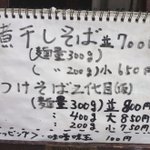 煮干しそば 並 700
(麺量300g)
( 〃 200g) 小 650円
つけそば 2代目(仮)
(麺量300g) 並 800円
( 〃 400g) 大 850
( 〃 200g) 小 750円
味玉 100円